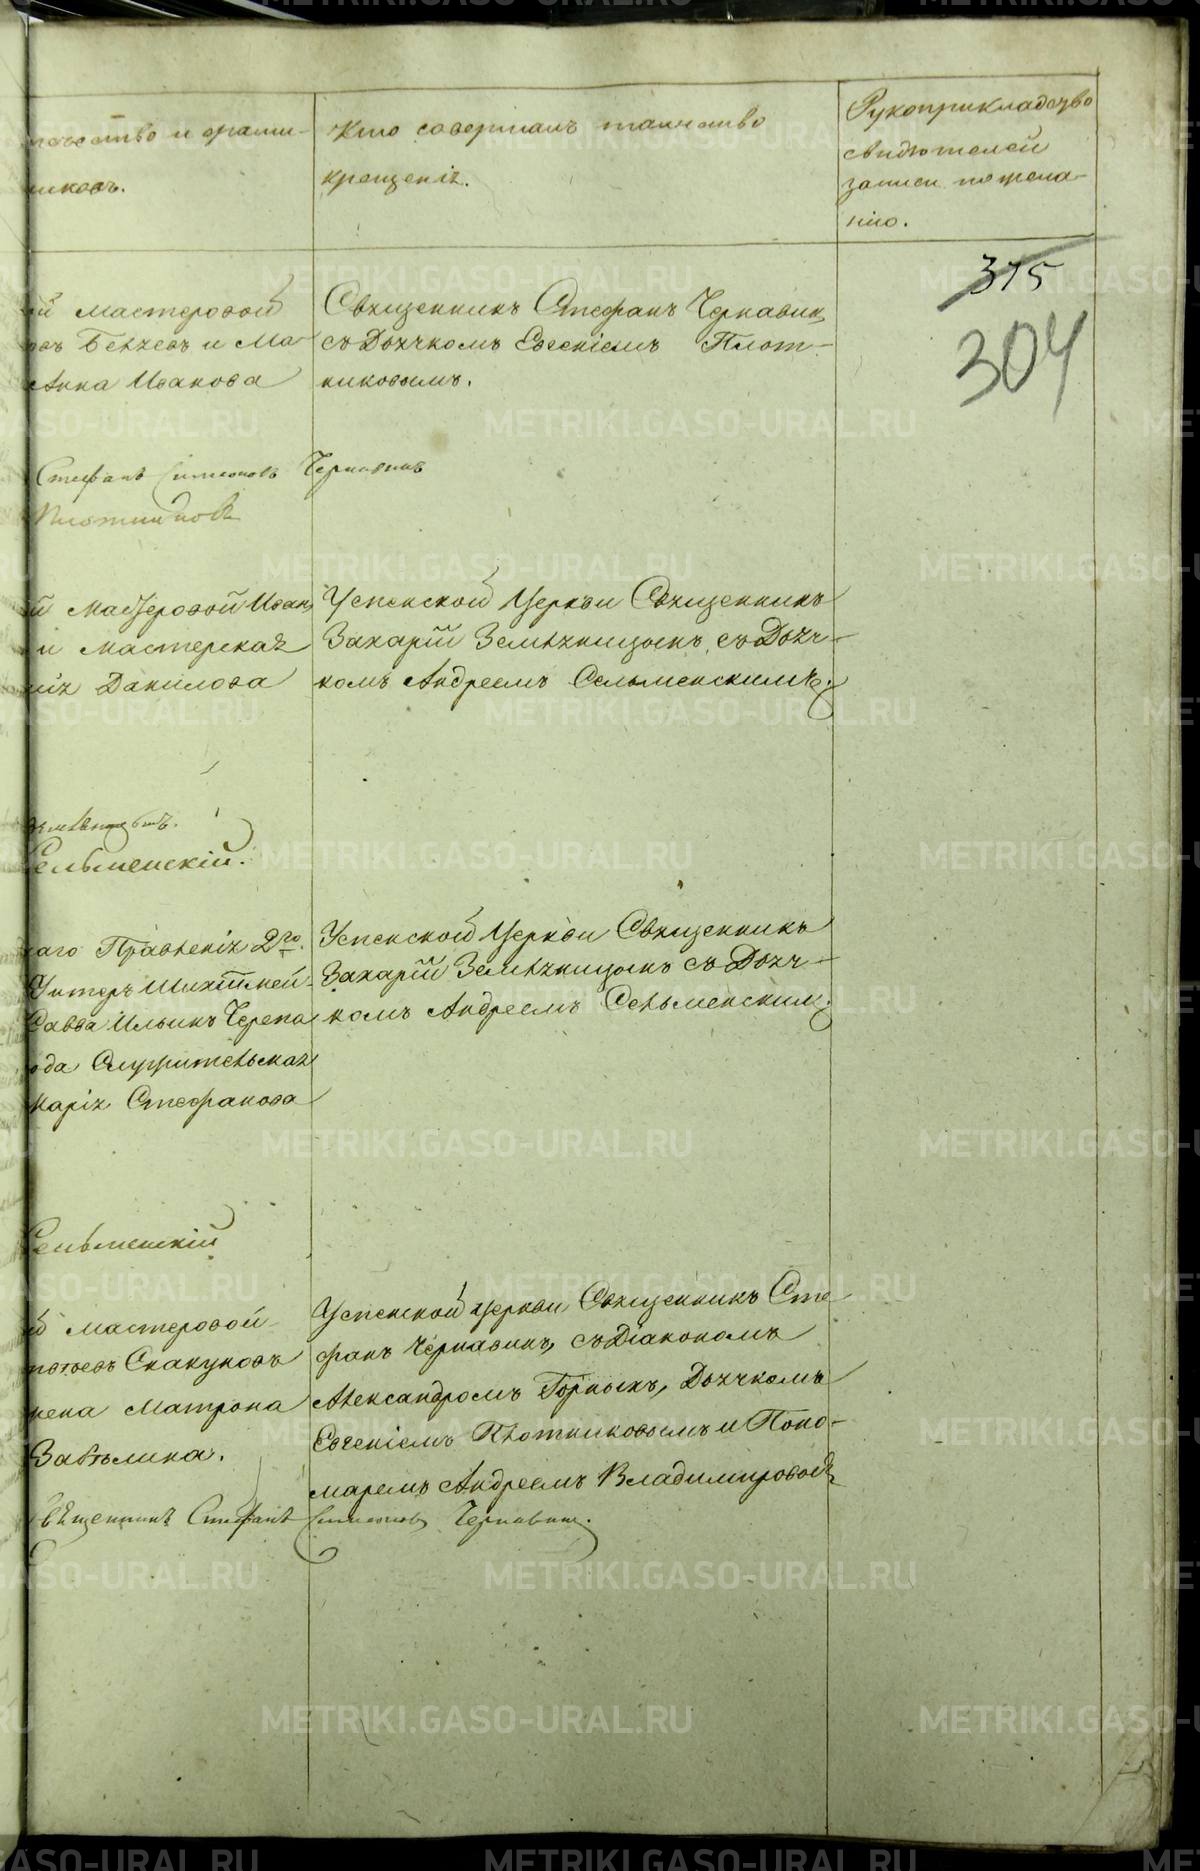 отчество и фами-
Кто совершалъ таинство
крещенія.
Рукоприкладство
свидѣтелей
записи по жела-
нію.
315
304
й мастеровой
Бѣляевъ и Ма-
Анна Иванова
Священникъ Стефанъ Чернавин
съ Дьячкомъ Евгеніемъ Плот-
никовымъ.
Стефанъ Симеоновъ Чернавинъ
Плотниковъ
й Мастеровой Иван
и мастерская
Данилова
Успенской Церкви Священникъ
Захарій Земляницынъ, съ Дьяч-
комъ Андреемъ Сельменскимъ.
Земляницынъ.
Сельменскій.
каго Правленія 2го
Унтеръ Шихтмей-
Савва Ильинъ Черепа
ода Служительская
Марія Стефанова
Успенской Церкви Священникъ
Захарій Земляницынъ съ Дьяч-
комъ Андреемъ Сельменским.
Сельменскій
й мастеровой
Скакуновъ
жена Матрона
Завьялина.
Успенской церкви Священникъ Сте
фанъ Чернавинъ, съ Діакономъ
Александромъ Горныхъ, Дьячкомъ
Евгеніемъ Плотниковымъ и Поно-
маремъ Андреемъ Владимировой
Священникъ Стефанъ Симеоновъ Чернавин.